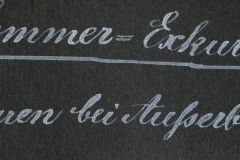 ommer=Exkur
uen bei Außerb